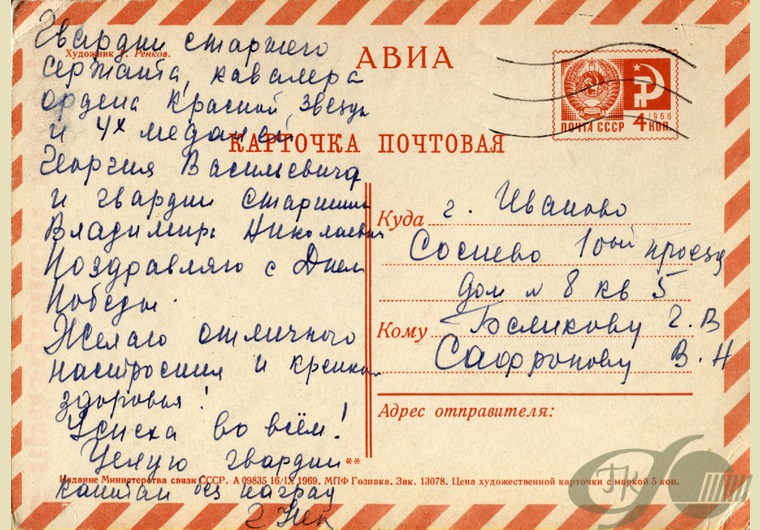 Гвардии старшего
Художник Г. Ренков.
сержанта, кавалера
ордена Красной Звезды
и 4х медалей
Георгия Васильевича
и гвардии старшины
Владимира Николаевича
Поздравляю с Днем
Победы.
Желаю отличного
настроения и крепкого
здоровья!
Успеха во всём!
Целую гвардии
капитан без наград
АВИА
КАРТОЧКА ПОЧТОВАЯ
1966
ПОЧТА СССР 4 КОП.
Куда г. Иваново
Соснево 1ый проезд
дом № 8 кв 5
Кому Беликову Г. В
Сафронову В. Н
Адрес отправителя:
**
Издание Министерства связи СССР. А 09835 16/IX 1969. МПФ Гознака. Зак. 13078. Цена художественной карточки с маркой 5 коп.